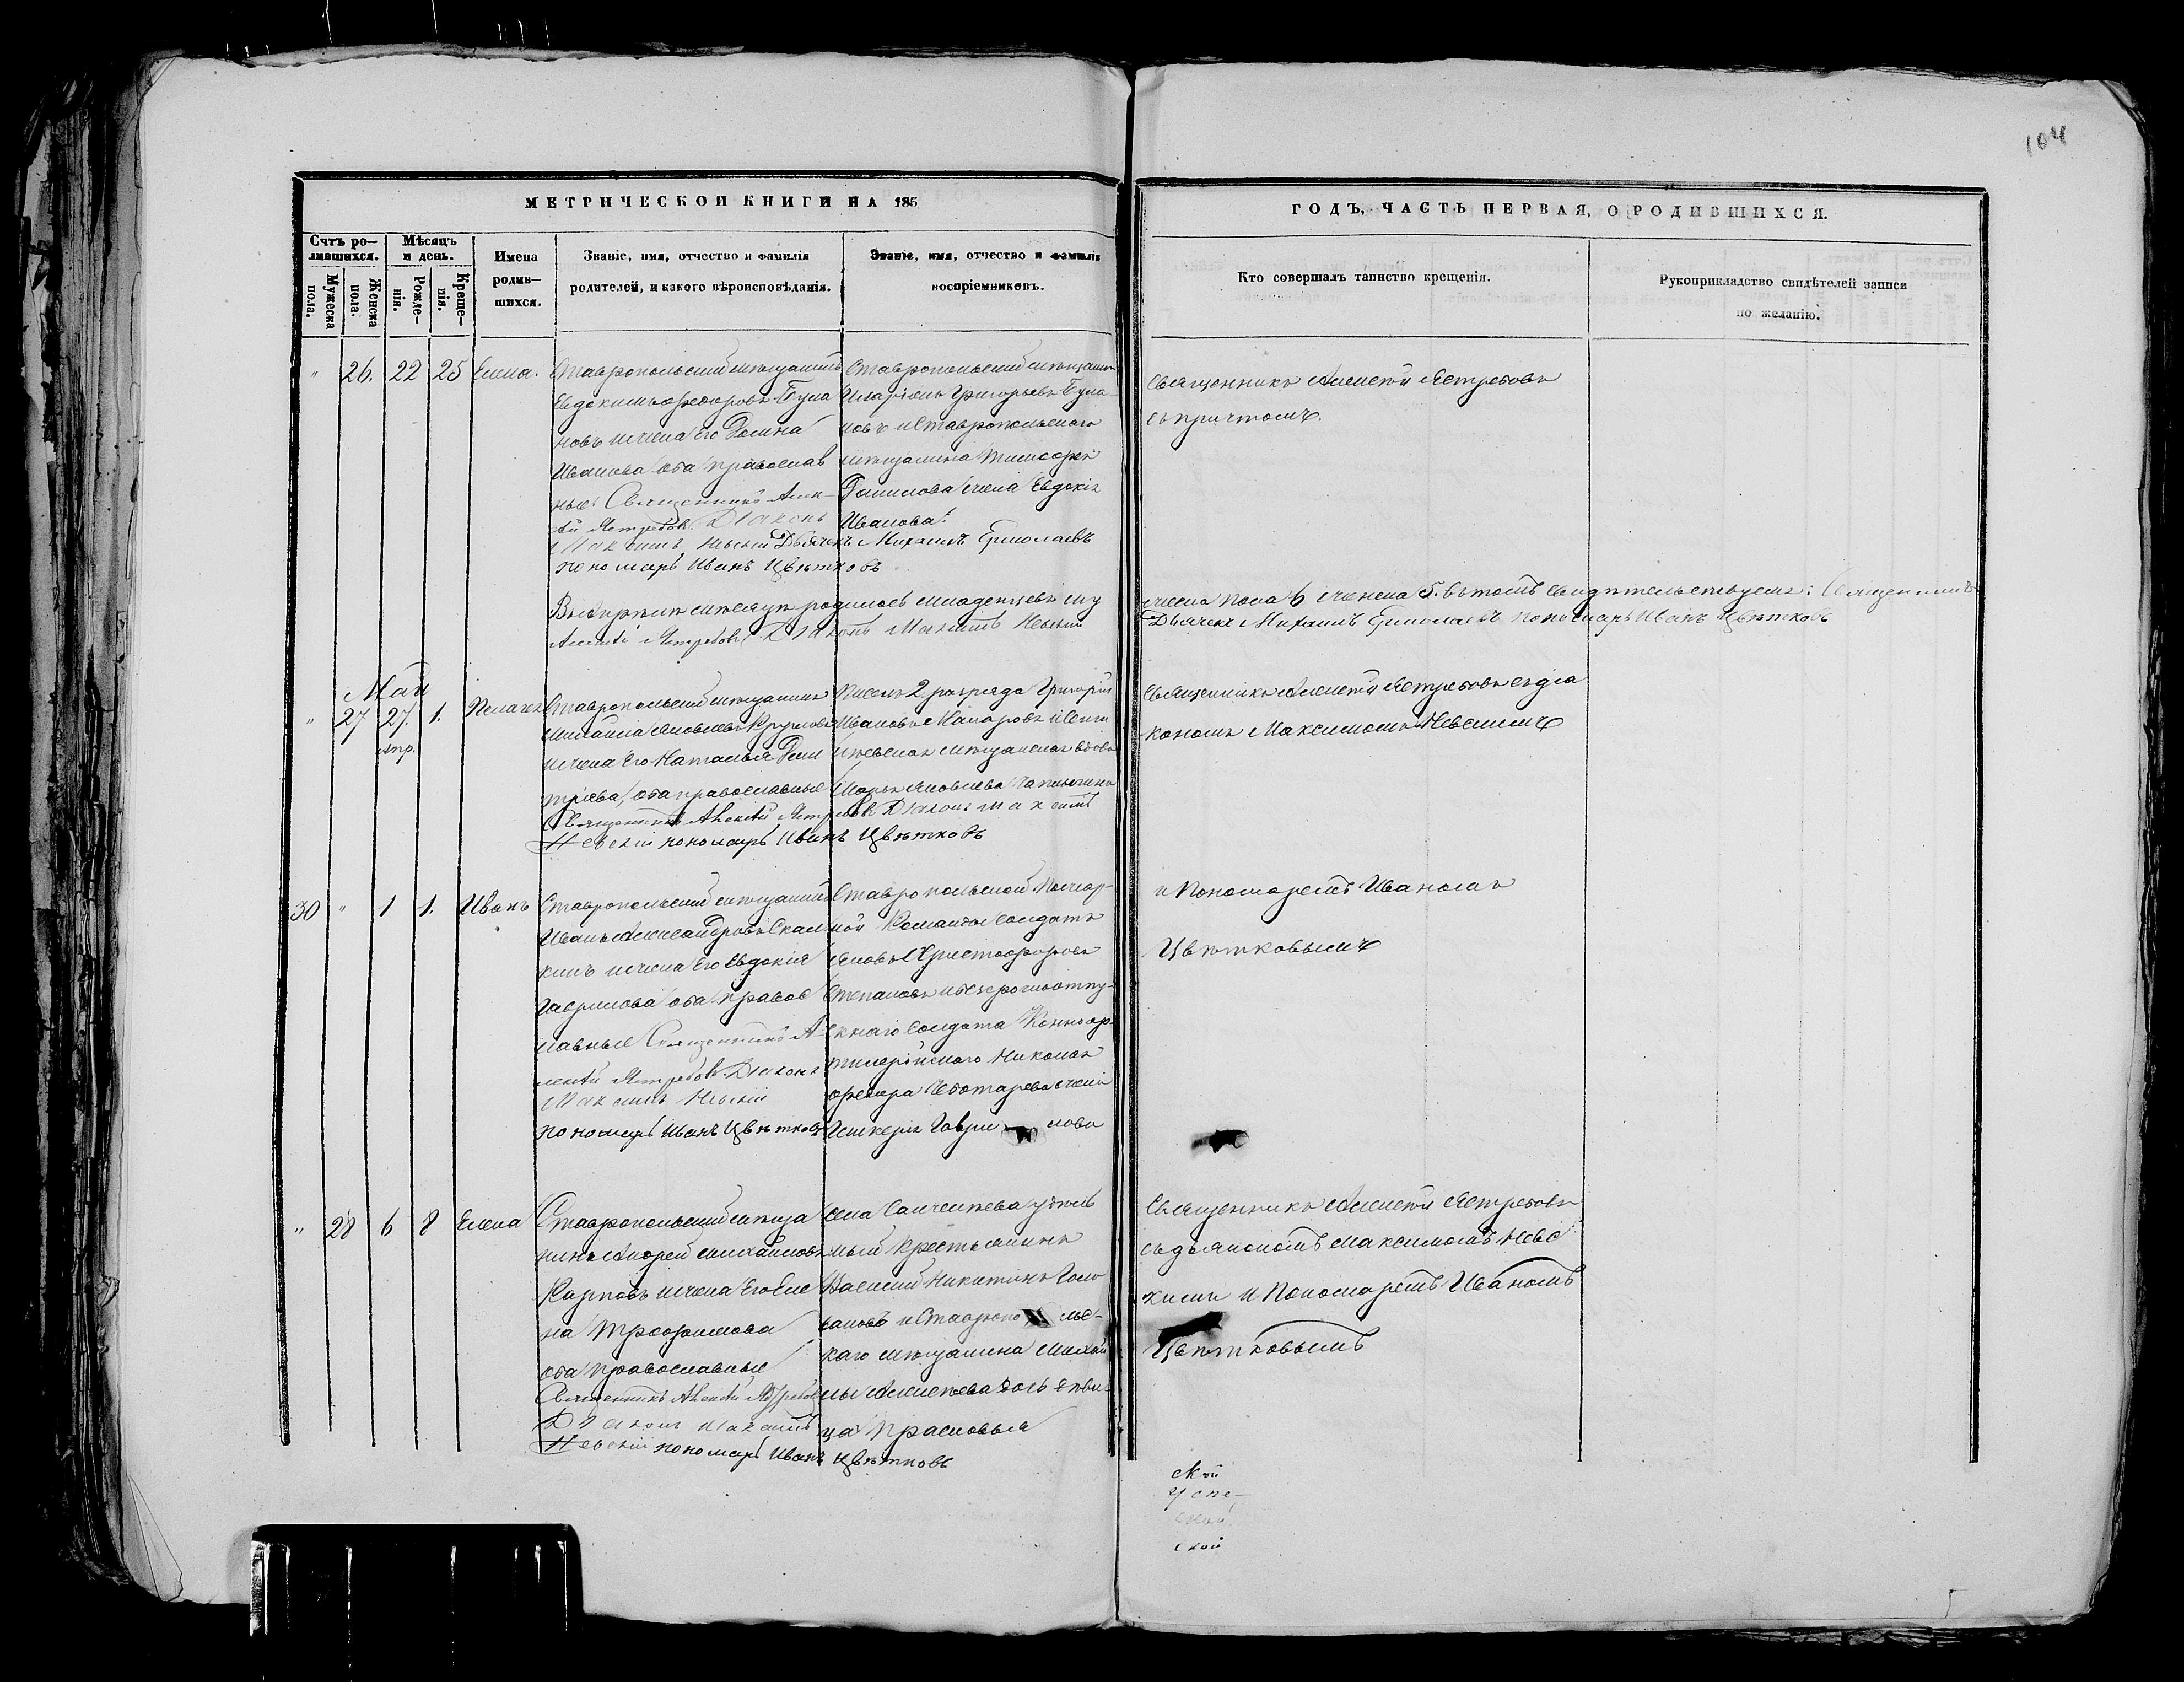 104
МЕТРИЧЕСКОЙ КНИГИ НА 185
ГОДЪ, ЧАСТЬ ПЕРВАЯ, О РОДИВШИХСЯ.
Счтъ ро-
дившихся.
Мужеска
пола.
Женска
пола.
Мѣсяцъ
и день.
Рожде-
нія.
Креще-
нія.
Имена
родив-
шихся.
Званіе, имя, отчество и фамилія
родителей, и какого вѣроисповѣданія.
Званіе, имя, отчество и фамилія
воспріемниковъ.
Кто совершалъ таинство крещенія.
Рукоприкладство свидѣтелей записи
по желанію.
" 26. 22 25 Елена.
Ставропольскій мѣщанинъ
Евдокимъ Федоровъ Була
новъ и жена Его
Иванова оба православ
ные. Священникъ Алек-
сѣй Ястребовъ. Діаконъ
Максимъ Невскій Дьячекъ Михаилъ Ермолаевъ
пономарь Иванъ Цвѣтковъ
Ставропольскій мѣщанинъ
Григорьевъ Була-
новъ и Ставропольскаго
мѣщанина
Данилова жена Евдокія
Иванова.
Священникъ Алексѣй Ястребовъ
съ причтомъ.
Въ Апрѣлѣ мѣсяцѣ родилось младенцевъ му
жеска пола 6 женска 5. въ томъ свидѣтельствуемъ: Священникъ
Алексѣй Ястребовъ Діаконъ Максимъ Невскій
Дьячекъ Михаилъ Ермолаевъ пономарь Иванъ Цвѣтковъ
Май
" 27 27. 1. Пелагея
апр.
Ставропольскій мѣщанинъ
Михаилъ Яковлевъ Кругловъ
и жена Его Наталья Дми
тріева, оба православные
Священникъ Алексѣй Ястребовъ Діаконъ Максимъ
Невскій пономарь Иванъ Цвѣтковъ
Писецъ 2 разряда Григорій
Ивановъ Макаровъ и
мѣщанская вдова
Марья Яковлева
Священникъ Алексѣй Ястребовъ съ діа
кономъ Максимомъ Невскимъ
30 " 1 1. Иванъ
Ставропольскій мѣщанинъ
Иванъ Александровъ Скал
кинъ и жена Его Евдокія
Гаврилова оба правос
лавные Священникъ А-
лексѣй Ястребовъ. Діаконъ
Максимъ Невскій
пономарь Иванъ Цвѣтковъ
Ставропольской Пожар-
ной Команды Солдатъ
Яковъ Христофоровъ
Степановъ и безсрочноотпу-
скнаго Солдата Конноар-
тилерійскаго Николая
Чеботарева жена
Гликерія Гаври лова
и Пономаремъ Иваномъ
Цвѣтковымъ
" 28 6 8 Елена
Ставропольскій мѣща
нинъ Андрей Михайловъ
Карповъ и жена Его Еле
на Трофимова
оба православные
Священникъ Алексѣй Ястребовъ
Діаконъ Максимъ
Невскій пономарь Иванъ Цвѣтковъ
села Санчелѣева удѣль
ный Крестьянинъ
Василій Никитинъ Голо
вановъ и Ставропо льс-
каго мѣщанина Михай
лы Алексѣева дочь дѣви-
ца Прасковья
Священникъ Алексѣй Ястребовъ
съ дьякономъ Максимомъ Невс
кимъ и Пономаремъ Иваномъ
Цвѣтковымъ
ской
Успе-
ской
ской